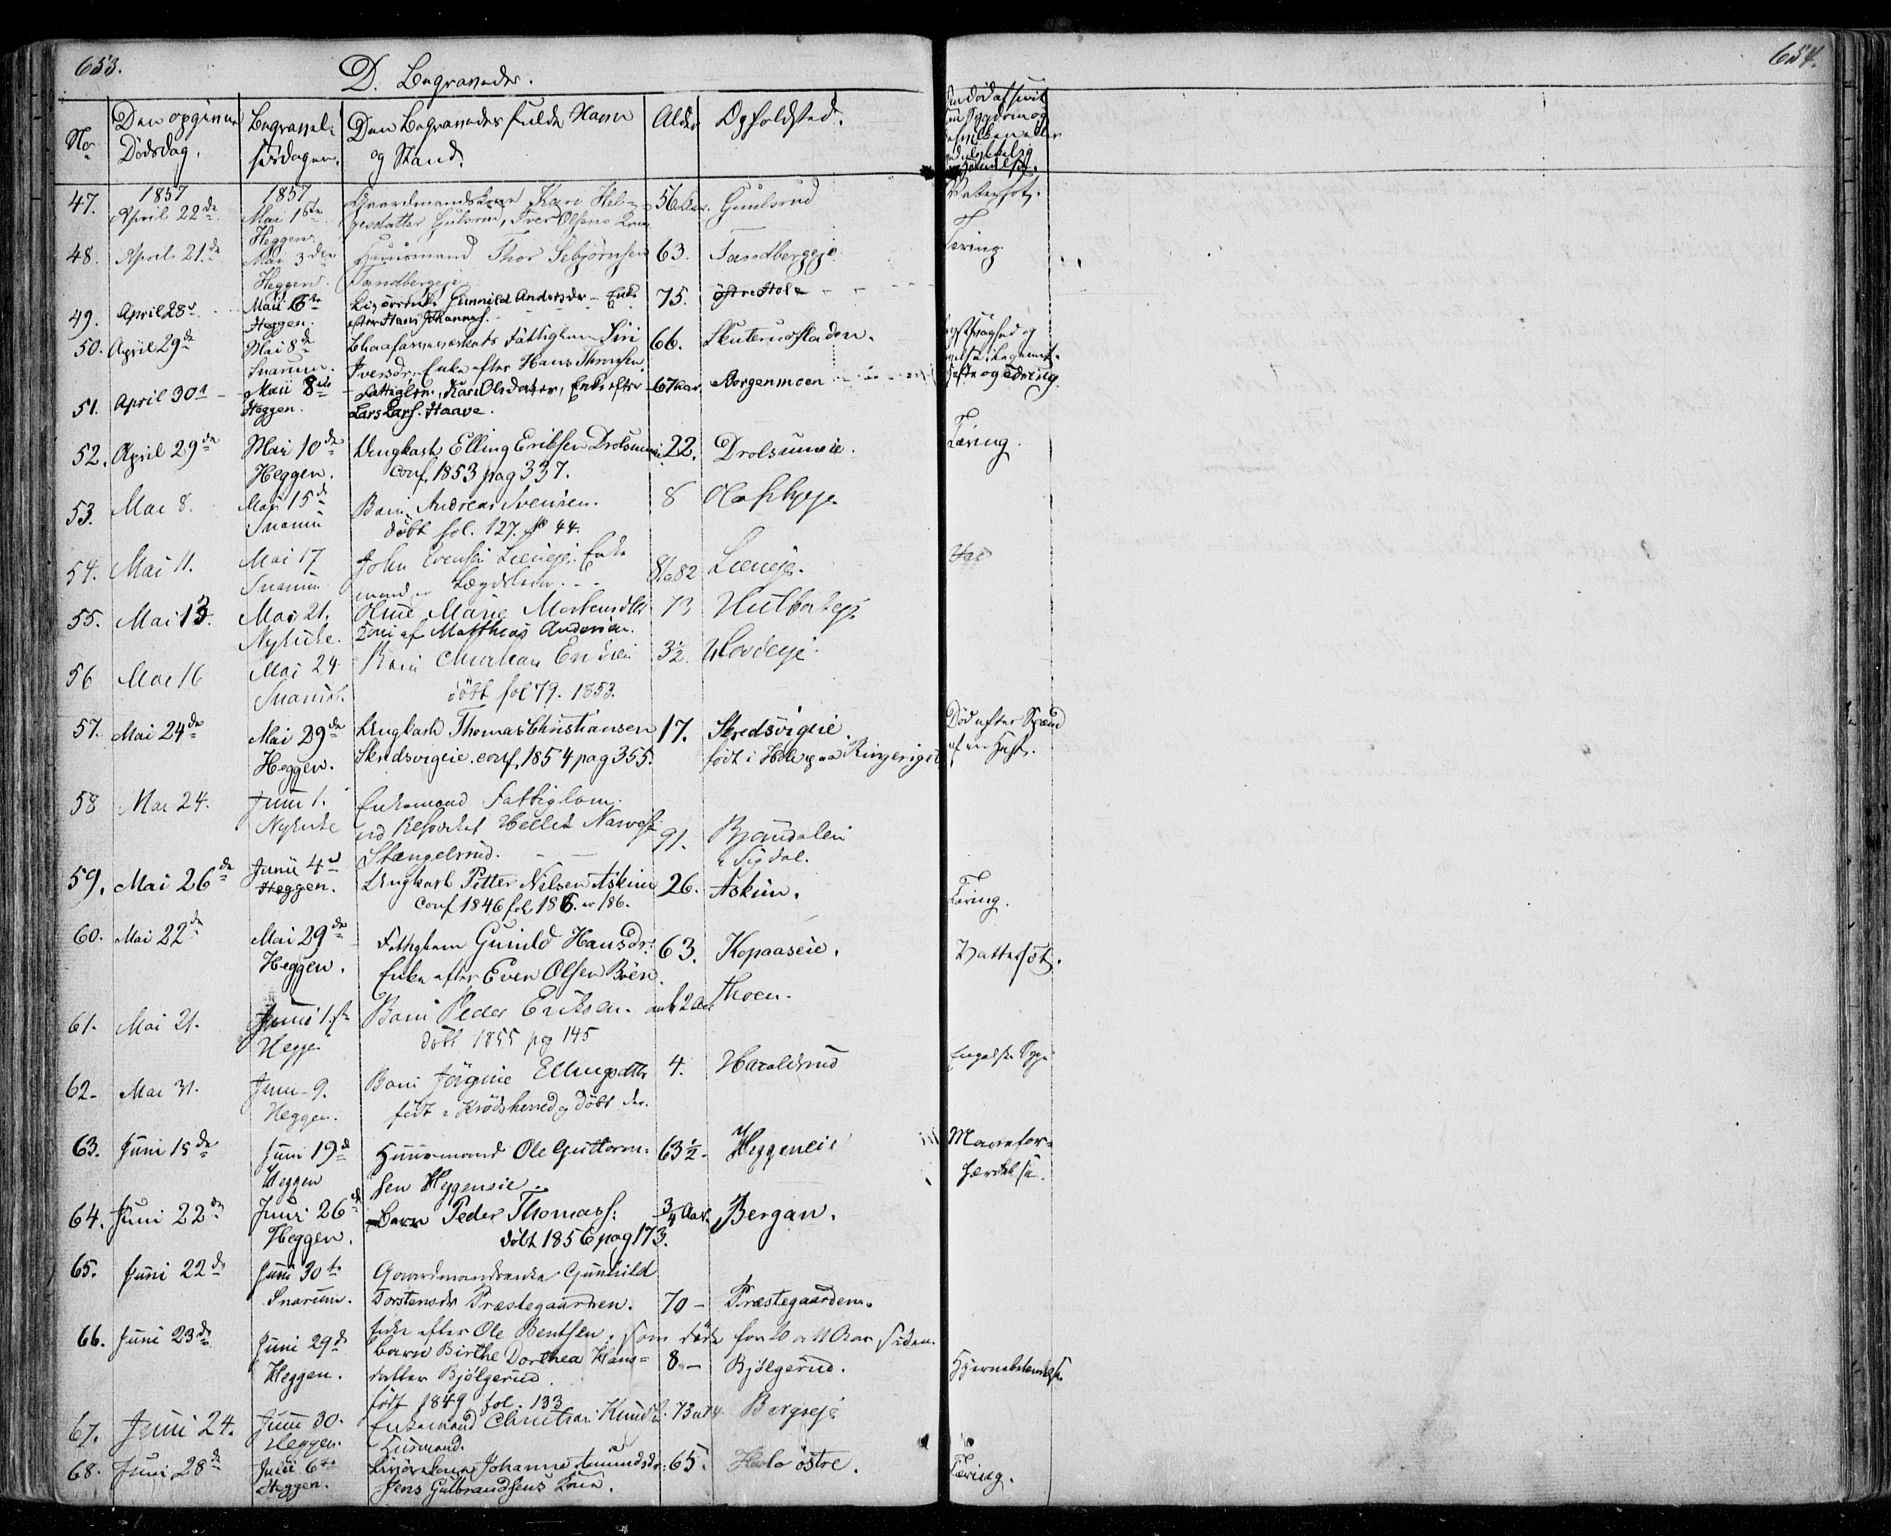 653.
654.
D. Begravede.
No
Den opgivne Dødsdag.
Begravelsesdagen.
Den Begravedes fulde Navn og Stand.
Alder
Opholdsted.
47. 1857 April 22de 1857 Mai 1ste Heggen. Gaardmandskone Kari Helgesdatter Gulsrud, Iver Olsens Kone 56 Gunlsrud Vatersot.
48. April 21de Mai 3die Heggen. Huusmand Thor Sebjørnsen Sandbergeje 63. Sandbergeje. Tæring
49. April 28de Maii 6te Heggen. Gunnild Andersdr – Enke efter Hans Johannes. 75. østre Hole
50. April 29de Mai 8de Snarum. Blaafarveværkets Fattiglem Siri Iversdr. Enke efter Hans Thomsen. 66. Skuterudfladen.
51. April 30te Maii 8de Heggen. Fattiglem, Kari Olsdatter, Enke efter Lars Lars. Haave. 67 Aar. Borgenmoen
52. April 29de Mai 10de Heggen. Ungkarl Elling Eriksen Drolsum conf. 1853 pag 337. 22. Drolsumeie. Tæring.
53. Mai 8. Mai 15de Snarum Barn, Andreas Svensen. døbt fol. 127. No 44. 8
54. Mai 11. Mai 17 Snarum John Evensen Enkemand Lægdslem. 81 a 82
55. Mai 13. Mai 21. Nykirke. Marie Mortensdtr Kone af Matthias Andersen. 73
56 Mai 16 Mai 24 Snarum. Barn døbt fol 79. 1853. 3½.
57. Mai 24de Mai 29de Heggen. Ungkarl Thomas Christiansen Skredsvigeie. conf. 1854 pag 355. 17. Skredsvigeie. født i Hole paa Ringeriget Død efter Spænd af en Hest.
58 Mai 24. Juni 1. Nykirke Enkemand Fattiglem. Stængelsrud. 91. Bjøndalen i Sigdal.
59. Mai 26de Junii 4de Heggen. Ungkarl Petter Nelsen Askim conf 1846 fol 186. 26. Askim. Tæring.
60. Mai 22de Mai 29de Heggen. Fattiglem Gunild Hansdr: Enke efter Even Olsen Bøen. 63. Kopaaseie. Vattersot.
61. Mai 21. Juni 1ste Heggen Barn Peder Eriksen. døbt 1855 pag 145 Thoen.
62. Mai 31. Juni 9. Heggen. Barn Jørgine Ellingsdatter født i Krødsherred og døbt der. 4. Haraldsrud Engelsk Syge
63. Juni 15de Juni 19de Heggen Huusmand Ole Guttormsen Heggeneie. 63½. Heggeneie Maveforhærdelse.
64. Juni 22de Juni 26de Heggen. Barn Peder Thomass. døbt 1856 pag 173. ¾ Aar. Bergan.
65. Juni 22de Juni 30te Snarum. Gaardmandsenke Gunhild Torstensdr Præstegaarden. 70 – Præstegaarden.
Enke efter Ole Bentsen. som døde for 10 a 11 Aar siden.
66. Juni 23de Juni 29de Heggen. barn Birthe Dorthea Hansdatter Bjølgerud. født 1849 fol. 133 8 – Bjølgerud. Hjernebetændelse
67. Juni 24. Juni 30. Heggen. Enkemand Christian Knuds. Husmand. 73 Bergseje
68. Juni 28de Julii 6te Heggen. Johanne Amundsdr: Jens Gulbrandsens Kone. 65. Hole østre. Tæring.